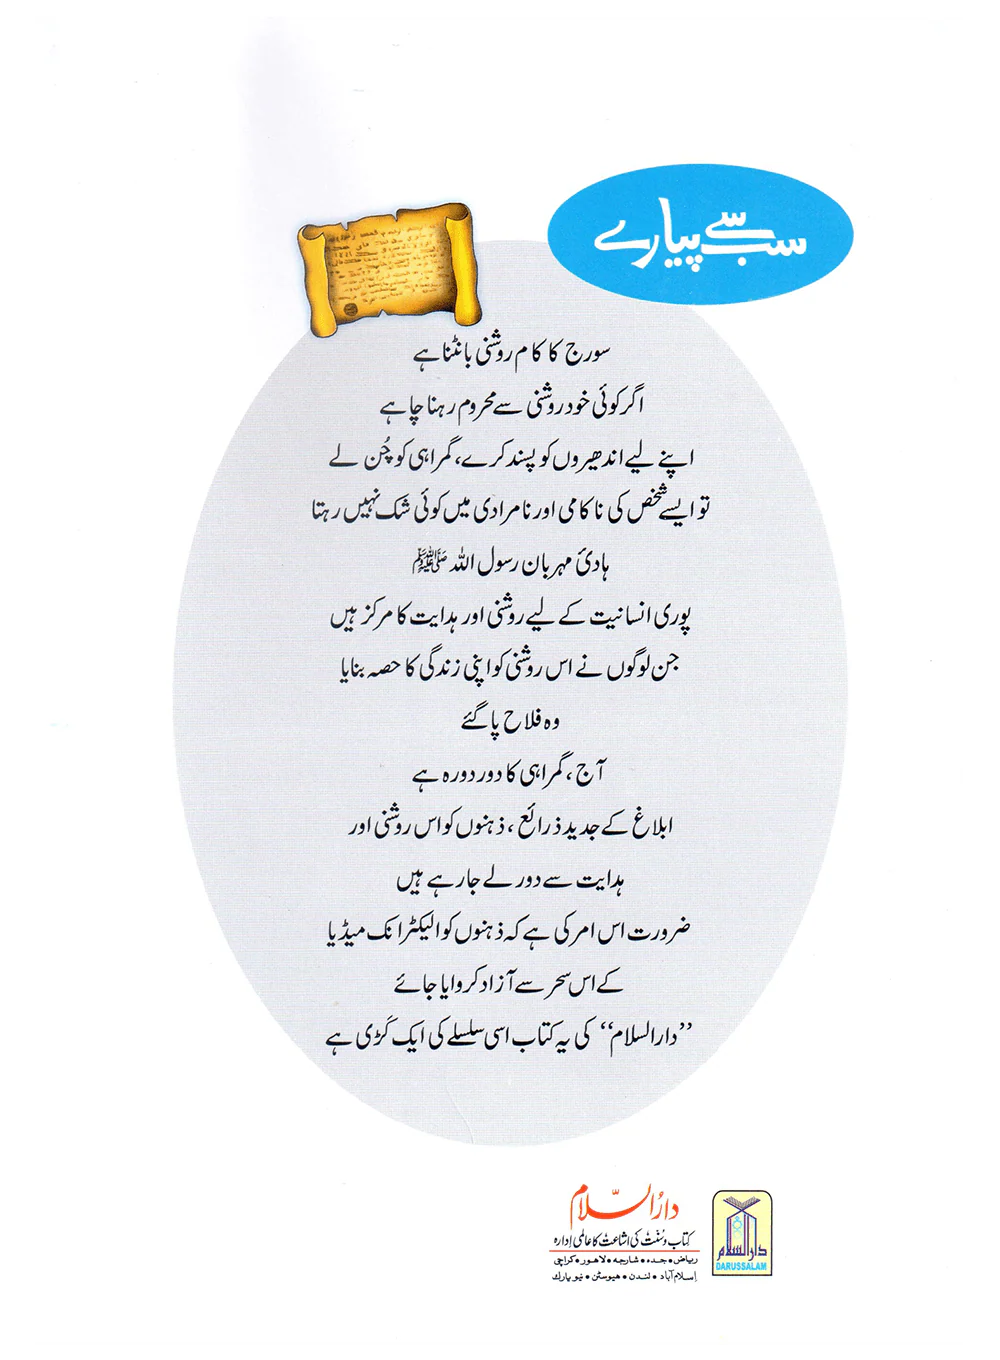 سب سے پیارے
سورج کا کام روشنی بانٹنا ہے
اگر کوئی خود روشنی سے محروم رہنا چاہے
اپنے لیے اندھیروں کو پسند کرے، گمراہی کو چُن لے
تو ایسے شخص کی ناکامی اور نامرادی میں کوئی شک نہیں رہتا
ہادیٔ مہربان رسول اللہ ﷺ
پوری انسانیت کے لیے روشنی اور ہدایت کا مرکز ہیں
جن لوگوں نے اس روشنی کو اپنی زندگی کا حصہ بنایا
وہ فلاح پا گئے
آج، گمراہی کا دور دورہ ہے
ابلاغ کے جدید ذرائع، ذہنوں کو اس روشنی اور
ہدایت سے دور لے جا رہے ہیں
ضرورت اس امر کی ہے کہ ذہنوں کو الیکٹرانک میڈیا
کے اس سحر سے آزاد کروایا جائے
”دارالسلام“ کی یہ کتاب اسی سلسلے کی ایک کَڑی ہے
دارُالسّلام
کتاب و سُنّت کی اشاعت کا عالمی اِدارہ
ریاض • جدہ • شارجہ • لاہور • کراچی
اِسلام آباد • لندن • ہیوسٹن • نیو یارک
دارالسلام
DARUSSALAM